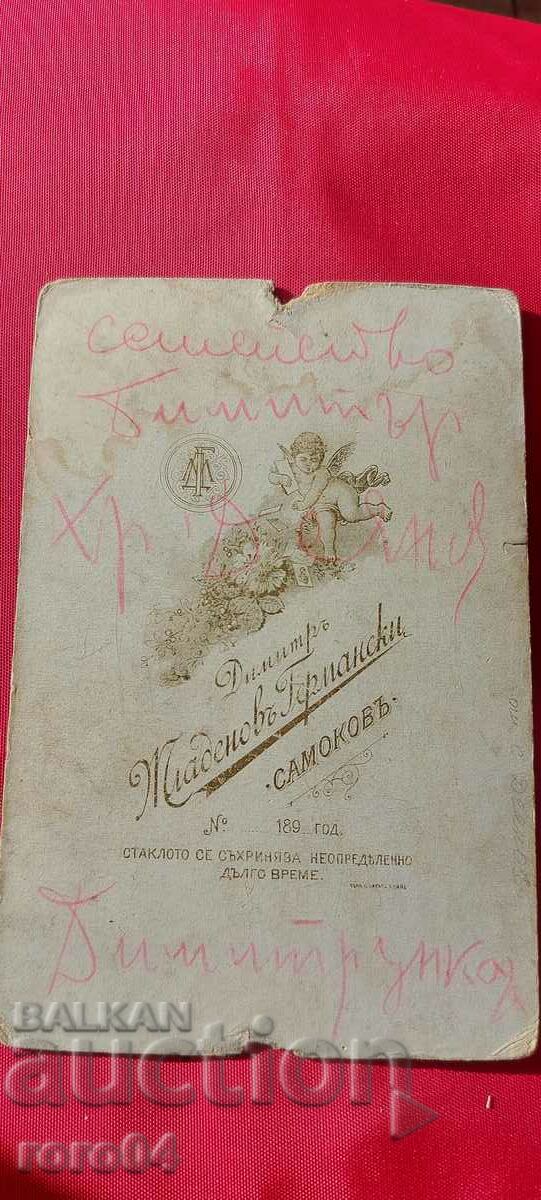 семейство
Димитър
Хр. Доянов
Димитръ
Младеновъ Германски
САМОКОВЪ.
№ ...... 189... год.
СТАКЛОТО СЕ СЪХРИНЯВА НЕОПРЕДѢЛЕННО
ДЪЛГО ВРЕМЕ.
Димитрунка
BALKAN
auction
roro04